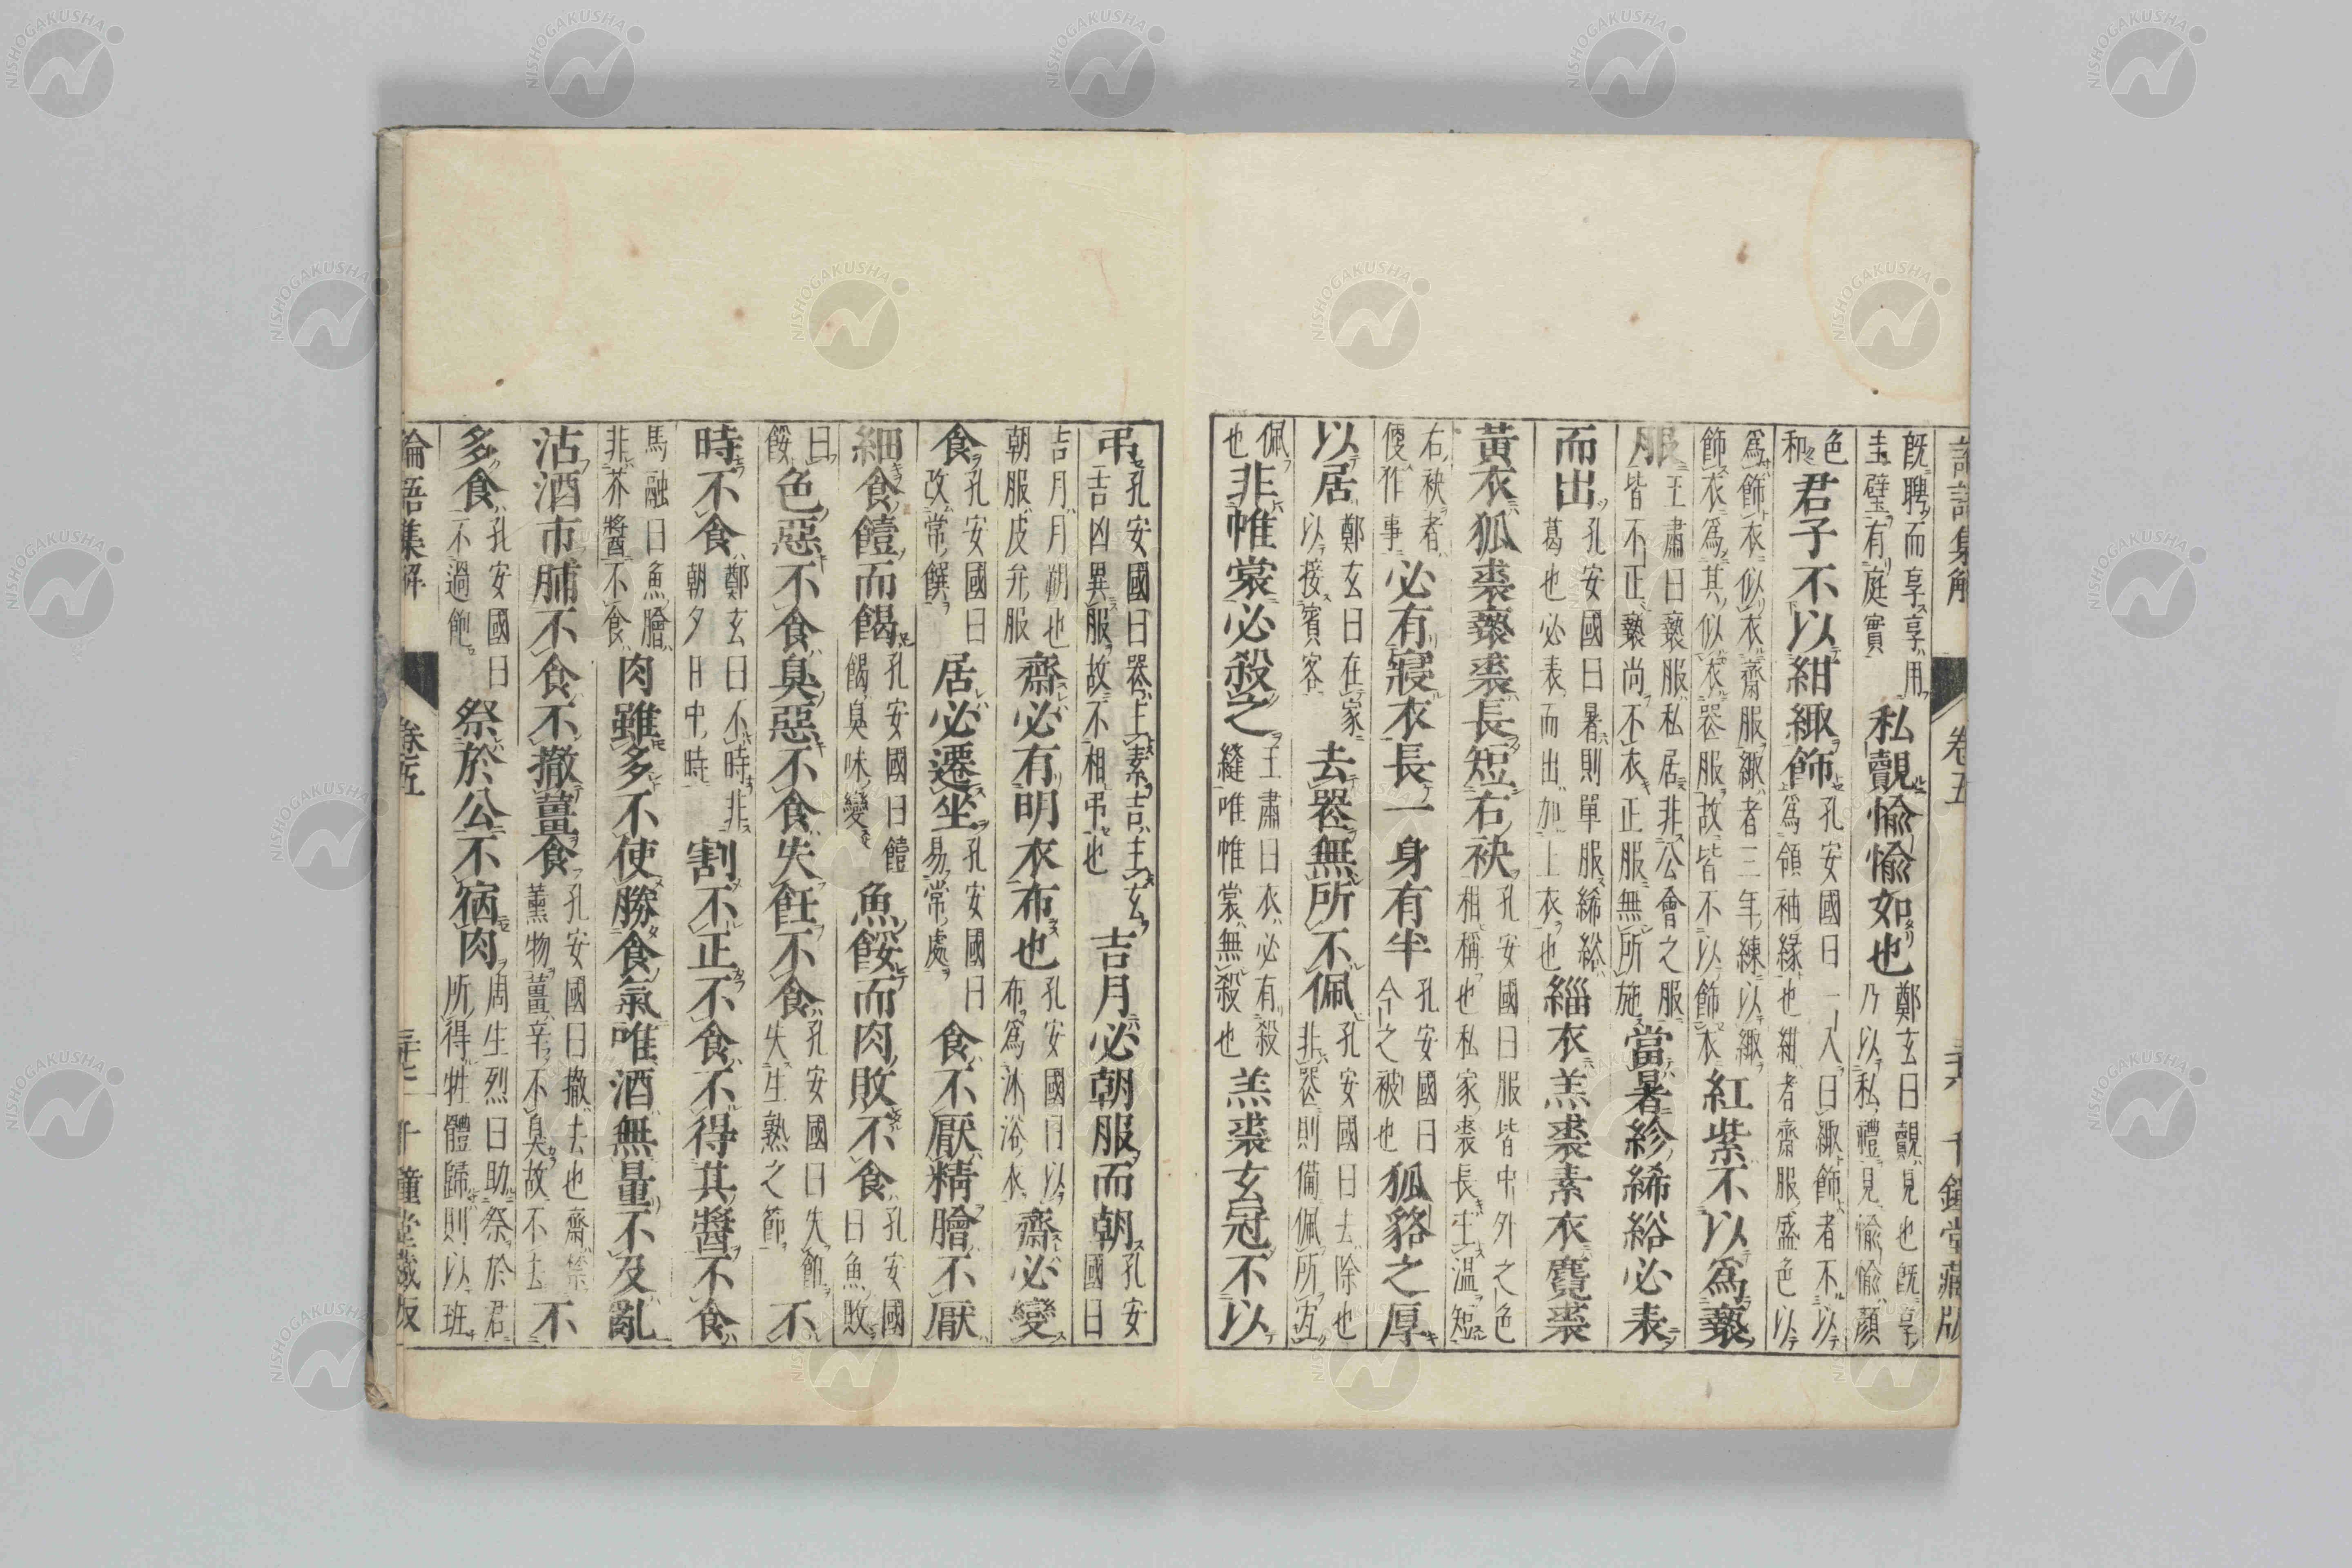 論語集解 卷五 二十六 千鍾堂藏版
既聘而享享用圭璧有庭實私覿愉愉如也鄭玄曰覿見也既享乃以私禮見愉愉顏
色和君子不以紺緅飾孔安國曰一入曰緅飾者不以爲領袖緣也紺者齋服盛色以
爲飾衣似衣齋服緅者三年練以緅飾衣爲其似衣喪服故皆不以飾衣紅紫不以爲褻
服王肅曰褻服私居非公會之服皆不正褻尚不衣正服無所施當暑紾絺綌必表
而出孔安國曰暑則單服絺綌葛也必表而出加上衣也緇衣羔裘素衣麑裘
黃衣狐裘褻裘長短右袂孔安國曰服皆中外之色相稱也私家裘長主溫短
右袂者便作事必有寢衣長一身有半孔安國曰今之被也狐貉之厚
以居鄭玄曰在家以接賓客去喪無所不佩孔安國曰去除也非喪則備佩所宜
佩也非帷裳必殺之王肅曰衣必有殺縫唯帷裳無殺也羔裘玄冠不以
弔孔安國曰喪主素吉主玄吉凶異服故不相弔也吉月必朝服而朝孔安國曰
吉月月朔也朝服皮弁服齋必有明衣布也孔安國曰以布爲沐浴衣齋必變
食孔安國曰改常饌居必遷坐孔安國曰易常處食不厭精膾不厭
細食饐而餲孔安國曰饐餲臭味變魚餒而肉敗不食孔安國曰魚敗
曰餒色惡不食臭惡不食失飪不食孔安國曰失飪失生熟之節不
時不食鄭玄曰不時非朝夕日中時割不正不食不得其醬不食
馬融曰魚膾非芥醬不食肉雖多不使勝食氣唯酒無量不及亂
沽酒市脯不食不撤薑食孔安國曰撤去也齋禁薰物薑辛不臭故不去不
多食孔安國曰不過飽祭於公不宿肉周生烈曰助祭於君所得牲體歸則以班
論語集解 卷五 二十七 千鍾堂藏版